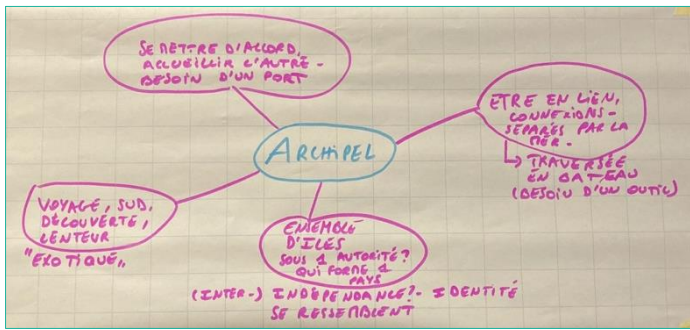 SE METTRE D'ACCORD,
ACCUEILLIR L'AUTRE -
BESOIN D'UN PORT
ÊTRE EN LIEN,
CONNEXIONS -
SÉPARÉS PAR LA
MER.
↳ TRAVERSÉE
EN BATEAU
(BESOIN D'UN OUTIL)
ARCHIPEL
VOYAGE, SUD,
DÉCOUVERTE,
LENTEUR
"EXOTIQUE"
ENSEMBLE
D'ILES
SOUS 1 AUTORITÉ?
QUI FORME 1
PAYS
(INTER-) INDÉPENDANCE? - IDENTITÉ
SE RESSEMBLENT